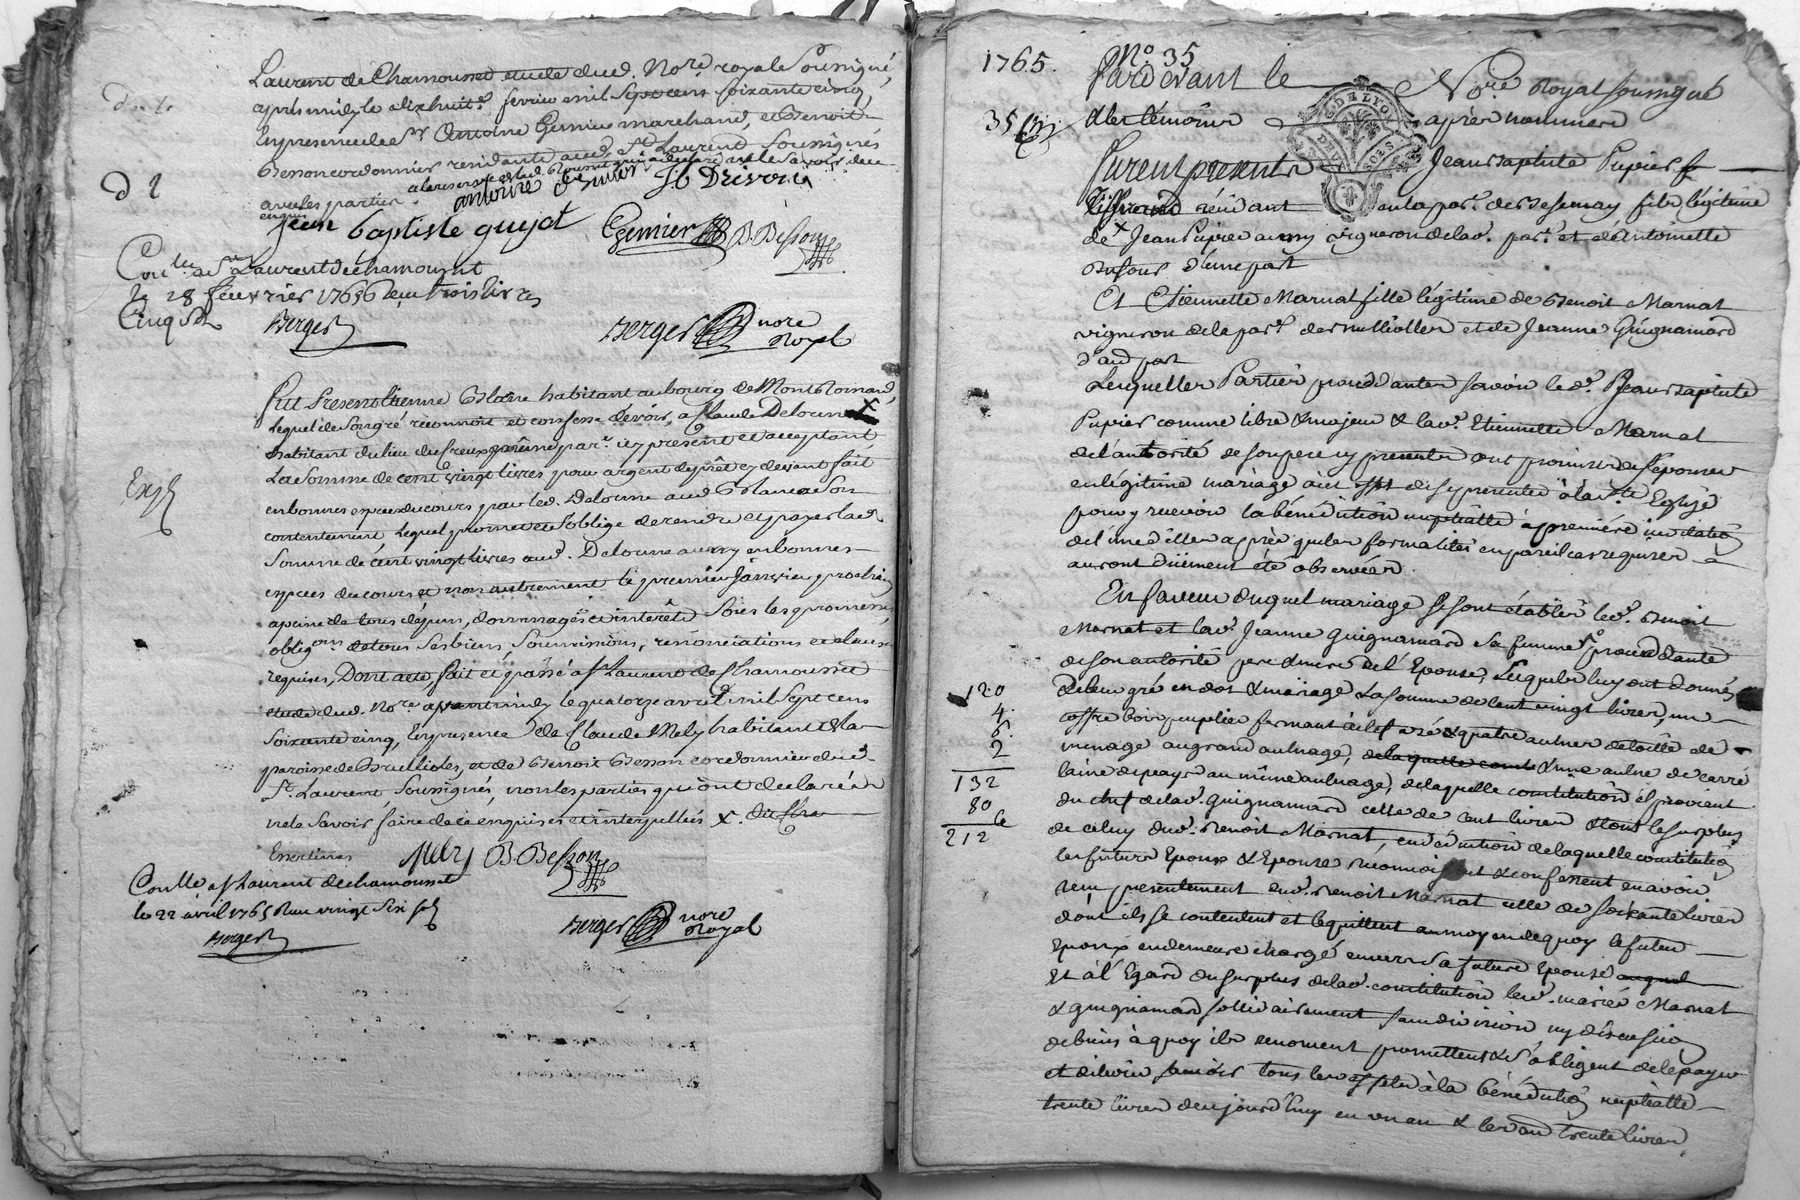 Laurent de Chamousset etude dud. No.re royal soussigné,
après midy le dixhuit.e fevrier mil sept cens soixante cinq,
en presence de s.r Antoine Gemier marchand, et Benoit
Besson cordonnier residants aud. St Laurent soussignés
avec les parties
enquis
antoine Gemier Jb Drivon
jean baptiste guyot Gemier B. Besson
Con.lle a St Laurent de chamousset
le 28 fevrier 1765 Reçu trois livres
Cinq sols
Berger Berger nore
Royal
Fut Present Etienne Blanc habitant au bourg de Montromand,
lequel de son gré reconnoit et confesse devoir, a Claude Deloune X
habitant du lieu du par.e icy present et acceptant
La Somme de cent vingt livres pour argent de prêt cy devant fait
en bonnes espèces du cours par led. Deloune aud. Blanc a son
contentement, lequel promet et s'oblige de rendre et payer lad.
Somme de cent vingt livres aud. Deloune aussy en bonnes
espèces du cours et non autrement le premier janvier prochain
a peine de tous dépens, dommages et interêts Sous les promesses,
oblig.ons de tous ses biens, soumissions, renonciations et clauses
requises, Dont acte, fait et passé a St Laurent de Chamousset
etude dud. No.re avant midy le quatorze avril mil sept cens
soixante cinq, en presence de Claude Mely habitant de la
paroisse de Brullioles, et de Benoit Besson cordonnier dud.
St Laurent, soussignés, non les parties qui ont declaré
ne le savoir faire de ce enquises et interpellées X. dit
Essertines Mely B. Besson
Con.lle a St Laurent de chamousset
le 22 avril 1765 Reçu vingt six sols
Berger Berger nore
Royal
Exp
1765. No. 35
Pardevant le No.re Royal soussigné
35 & les témoins après nommés
DE LYON
DEUX SOLS
furent presents Jean Baptiste Pupier
Tisserand résidant en la par.e de Bessenay fils légitime
de X Jean Pupier aussy vigneron de lad. par.e et d'Antoinette
Dufour d'une part
Et Etiennette Marnat fille légitime de Benoit Marnat
vigneron de la par.e des Brullioles et de Jeanne Guignamard
d'aud. part
Lesquelles Parties procédantes savoir led. Jean Baptiste
Pupier comme libre & majeur & lad. Etiennette Marnat
de l'autorité de son pere cy present ont promis de s'épouser
en légitime mariage à cet effet de se presenter à la Ste Eglise
pour y recevoir la bénédiction nuptialle à première invitation
de l'une d'elles après que les formalités en pareil cas requises
auront duement été observées.
En faveur duquel mariage se sont établis led. Benoit
Marnat et lad. Jeanne Guignamard sa femme procédante
de son autorité pere & mere de l'Epouse, Lesquels luy ont donnés
120 de leur gré en dot & mariage La somme de Cent vingt livres, un
4. coffre bois peuplier fermant à clef & quatre aulnes de toille de
6. menage au grand aulnage, de laquelle & une aulne de carré
2 laine de pays au même aulnage, de laquelle constitution il provient
132 du chef de lad. Guignamard celle de Cent livres & tout le surplus
80 de celuy dud. Benoit Marnat, en déduction de laquelle constitution
212 les futurs Epoux & Epouse reconnoissent & confessent en avoir
reçu presentement dud. Benoit Marnat celle de soixante livres
dont ils se contentent et le quittent au moyen de quoy le futur
Epoux en demeure chargé envers sa future Epouse
Et à l'Egard du surplus de lad. constitution led. mariés Marnat
& Guignamard sollidairement sans division ny discussion
de biens à quoy ils renoncent promettent & s'obligent de le payer
et delivrer savoir tous les effets à la bénédiction nuptialle
trente livres d'aujourd'huy en un an & les aud. trente livres